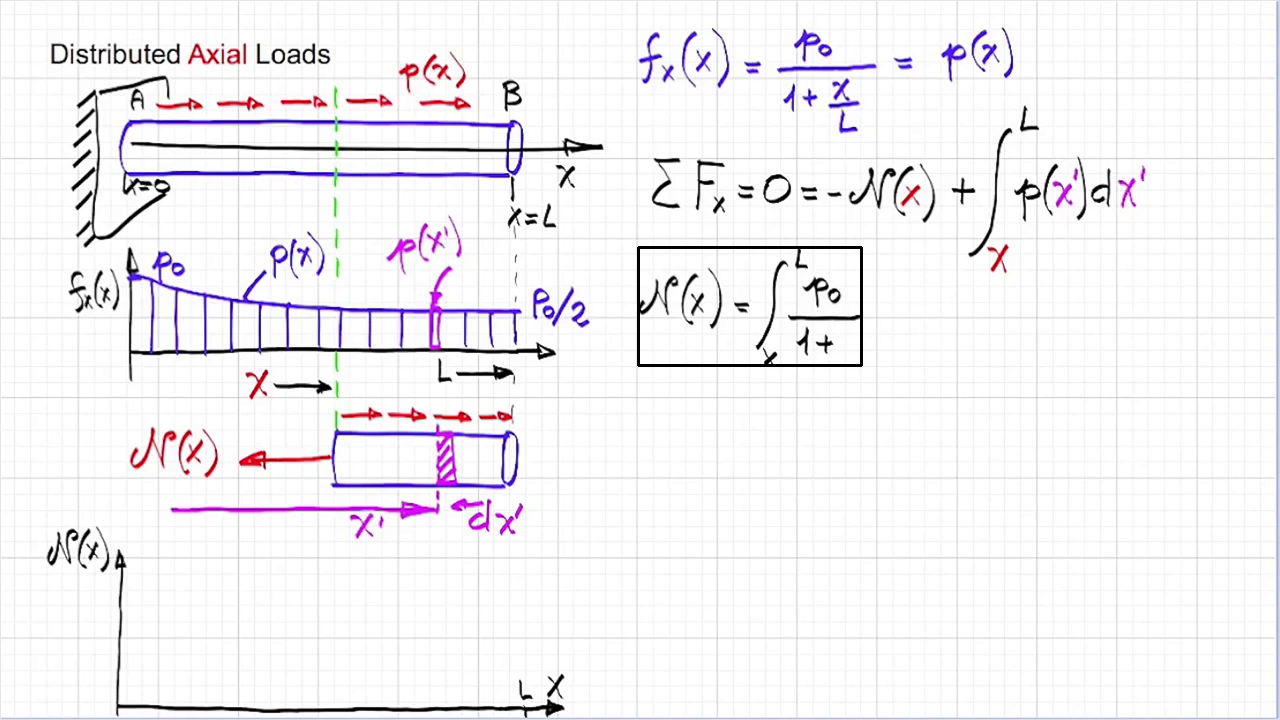 Distributed Axial Loads
p(x)
A
B
x=0
x
x=L
f_x(x)
p₀
p(x)
p(x')
P₀/2
x
L
N(x)
x'
dx'
N(x)
L
x
f_x(x) = p₀/(1+x/L) = p(x)
ΣF_x = 0 = -N(x) + ∫_x^L p(x')dx'
N(x) = ∫_x^L p₀/(1+